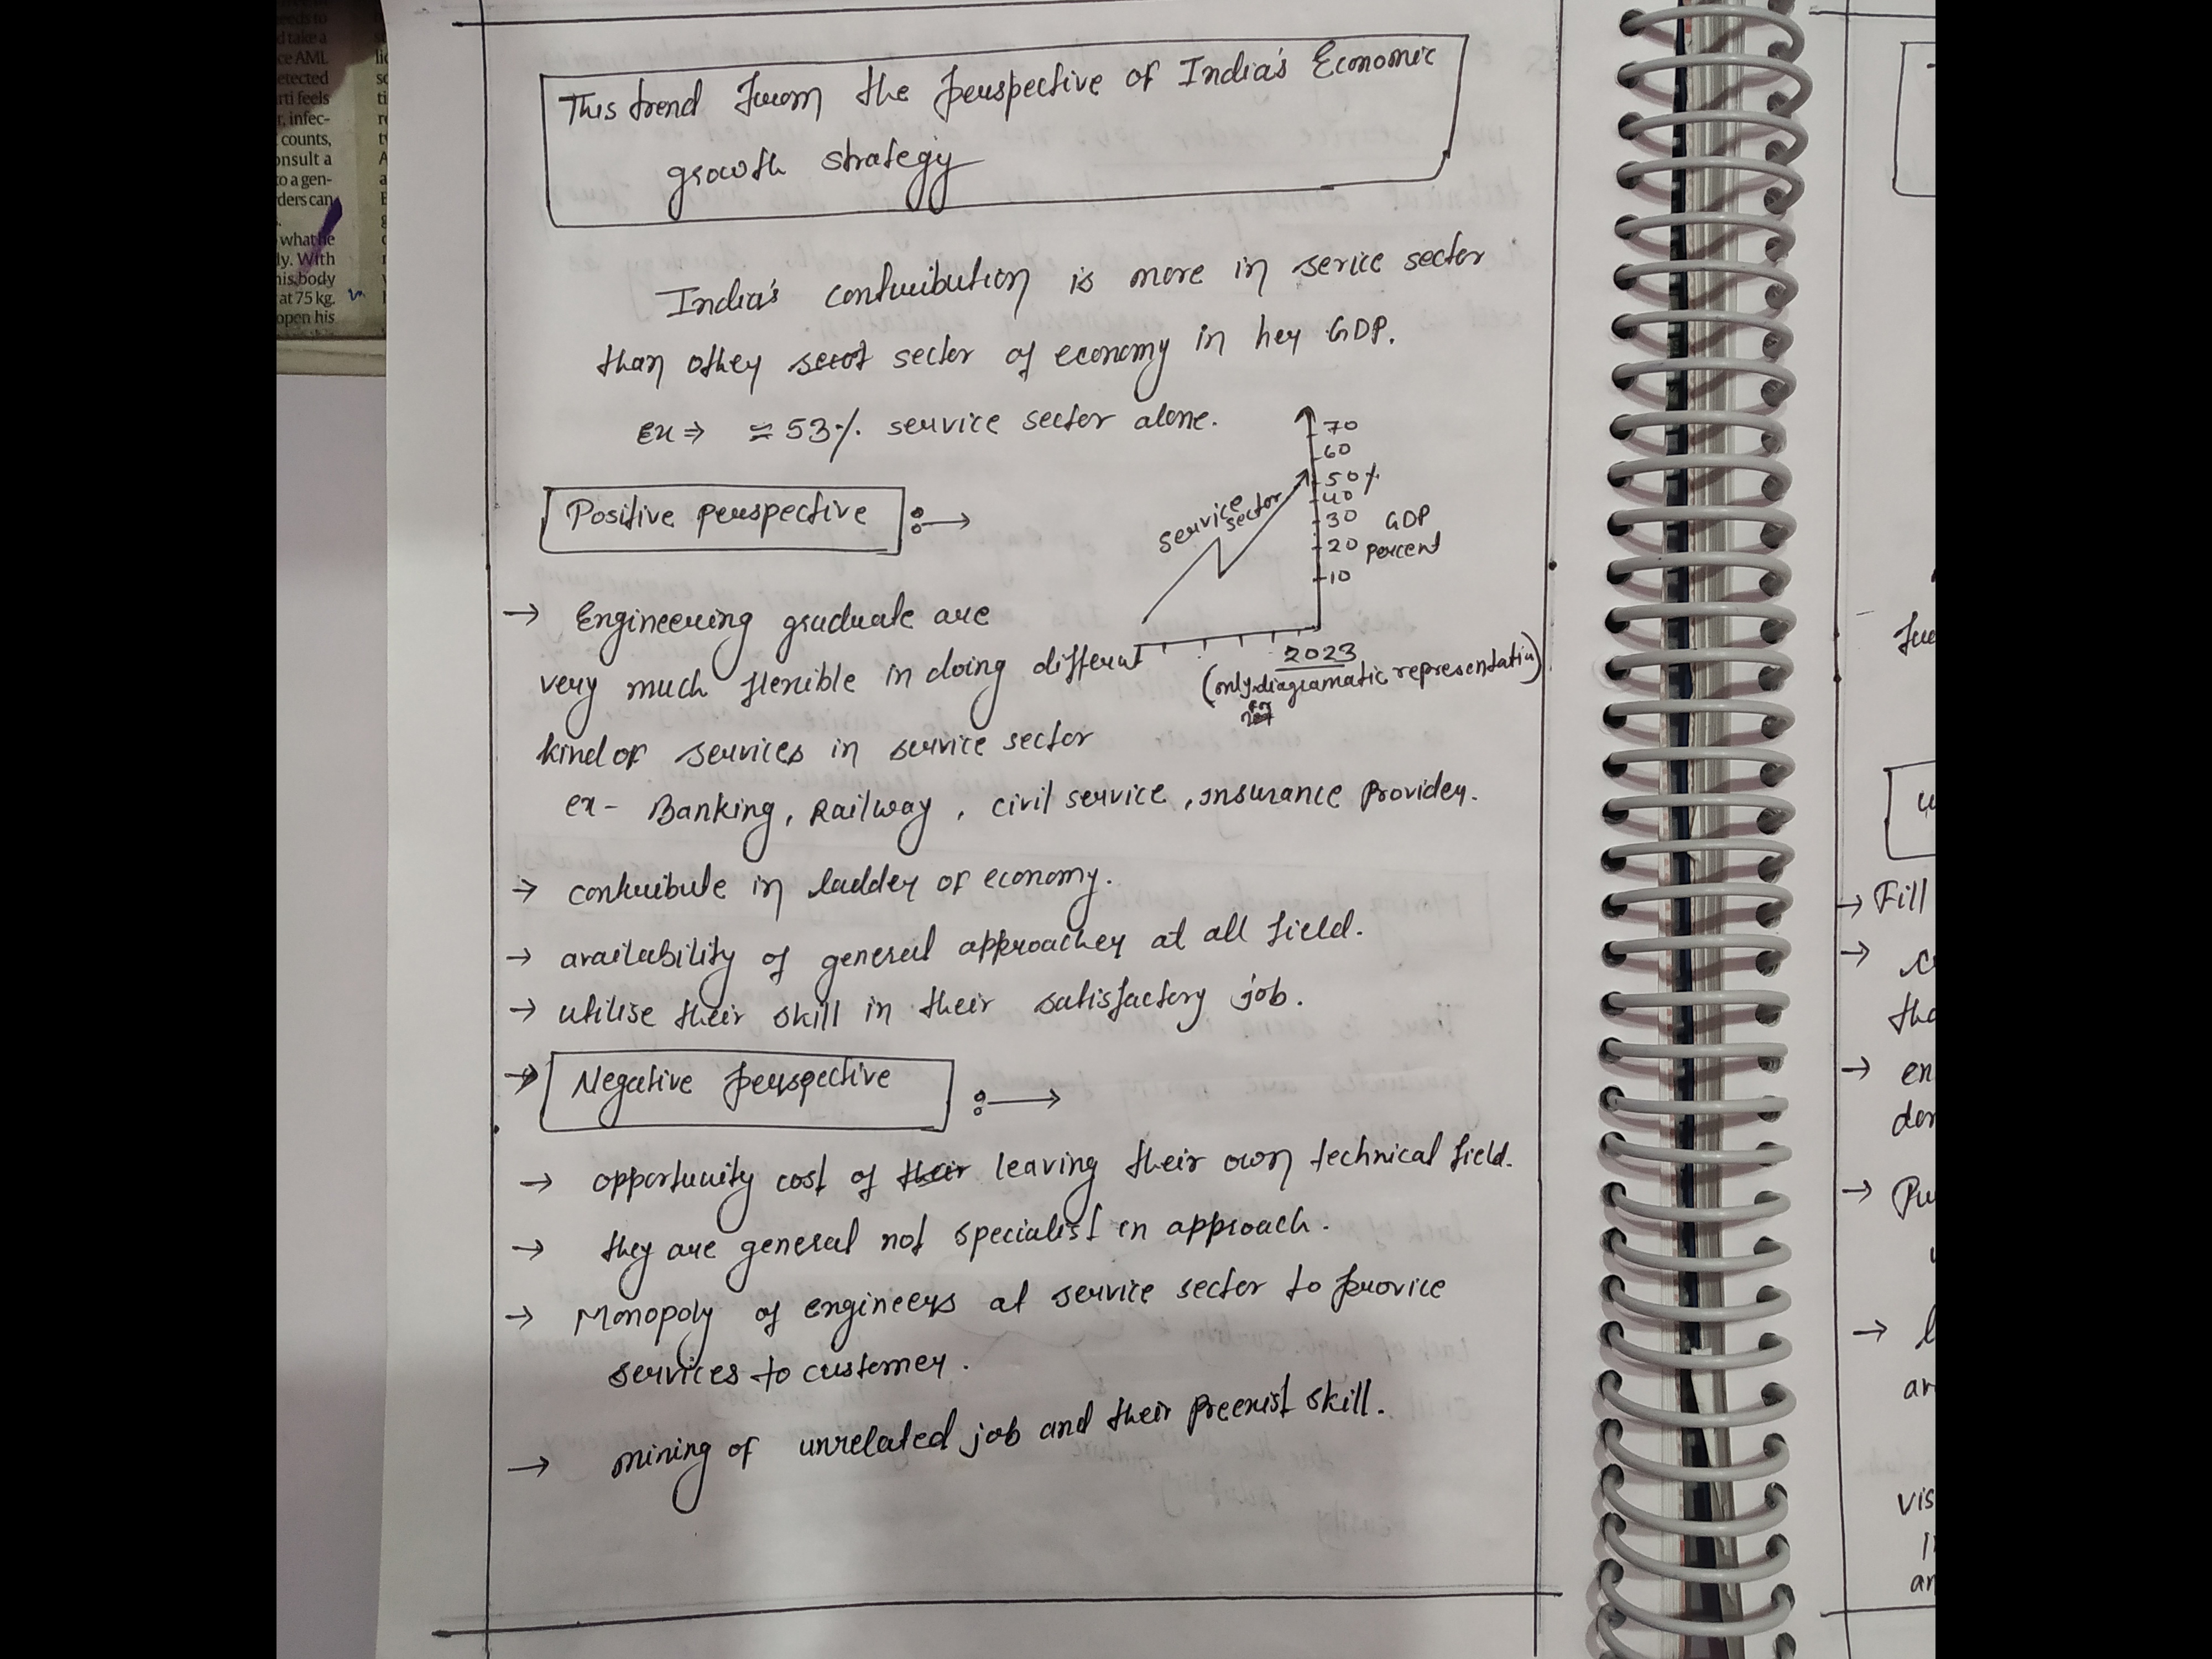 This trend from the perspective of India's Economic
growth strategy
India's contribution is more in serice sector
than other sector of economy in her GDP.
ex ⇒ ≈ 53% service sector alone.
70
60
50%
40
30
20
10
GDP
percent
service
sector
2023
(only diagramatic representatin)
for
Positive perspective :→
→ Engineering graduate are
very much flexible in doing different
kind of services in service sector
ex- Banking, Railway, civil service, insurance Provider.
→ contribute in ladder of economy.
→ availability of general approacher at all field.
→ utilise their skill in their satisfactory job.
→ Negative perspective :→
→ opportunity cost of their leaving their own technical field.
→ they are general not specialist in approach.
→ Monopoly of engineers at service sector to provice
services to customer.
→ mixing of unrelated job and their preexist skill.
needs to
d take a
ce AML
detected
rti feels
r, infec-
counts,
onsult a
to a gen-
ders can
what he
ly. With
his body
at 75 kg.
open his
→ Fill